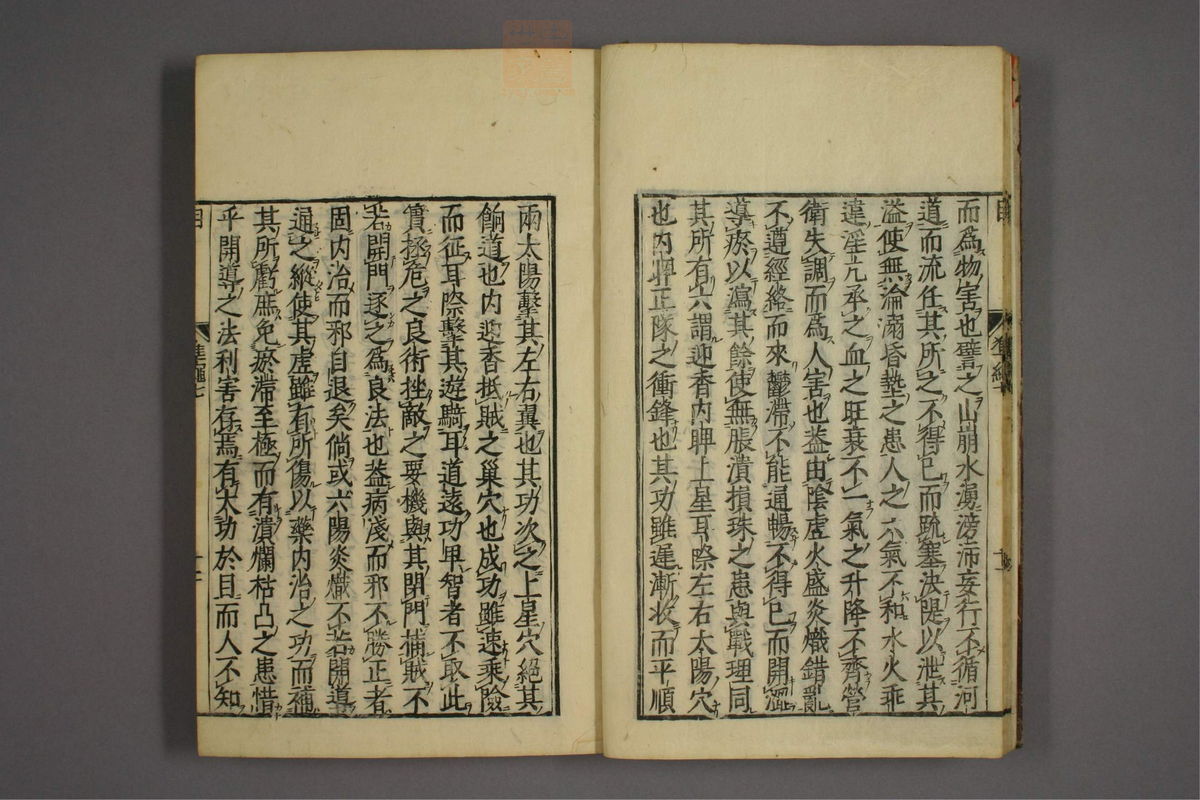 而爲物害也譬之山崩水湧滂沛妄行不循河
道而流任其所之不得已而疏塞決隄以泄其
溢使無淪溺昏墊之患人之六氣不和水火乖
違淫亢承之血之旺衰不一氣之升降不齊營
衛失調而爲人害也葢由陰虛火盛炎熾錯亂
不遵經絡而來鬱滯不能通暢不得已而開澀
導瘀以瀉其餘使無脹潰損珠之患與戰理同
其所有六謂迎香內睥上星耳際左右太陽穴
也內睥正隊之衝鋒也其功雖遲漸收而平順
兩太陽擊其左右翼也其功次之上星穴絕其
餉道也內迎香抵賊之巢穴也成功雖速乘險
而征耳際擊其遊騎耳道遠功卑智者不取此
實拯危之良術挫敵之要機與其閉門捕賊不
若開門逐之爲良法也葢病淺而邪不勝正者
固內治而邪自退矣倘或六陽炎熾不若開導
通之縱使其虛雖有所傷以藥內治之功而補
其所虧庶免瘀滯至極而有潰爛枯凸之患惜
乎開導之法利害存焉有大功於目而人不知